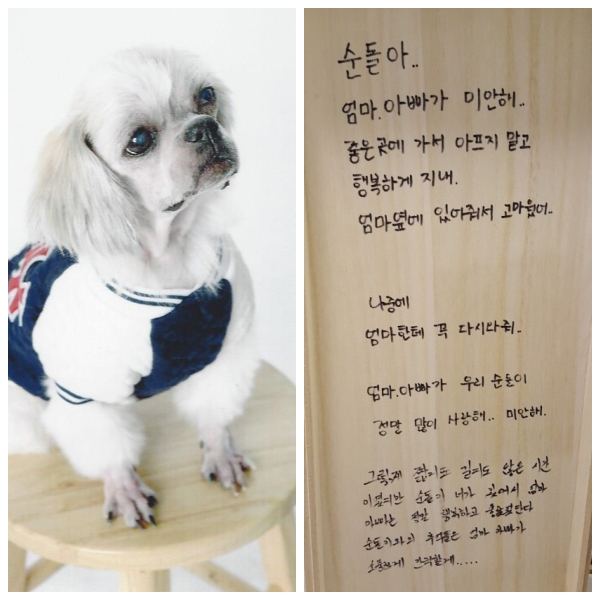 순돌아..
엄마.아빠가 미안해..
좋은곳에 가서 아프지 말고
행복하게 지내.
엄마옆에 있어줘서 고마웠어..
나중에
엄마한테 꼭 다시와줘..
엄마.아빠가 우리 순돌이
정말 많이 사랑해.. 미안해.
그렇게 짧지도 길지도 않은 시간
이였지만 순돌이 너가 있어서 엄마
아빠는 정말 행복하고
순돌이와의 추억들은 엄마 아빠가
소중하게 간직할게.....